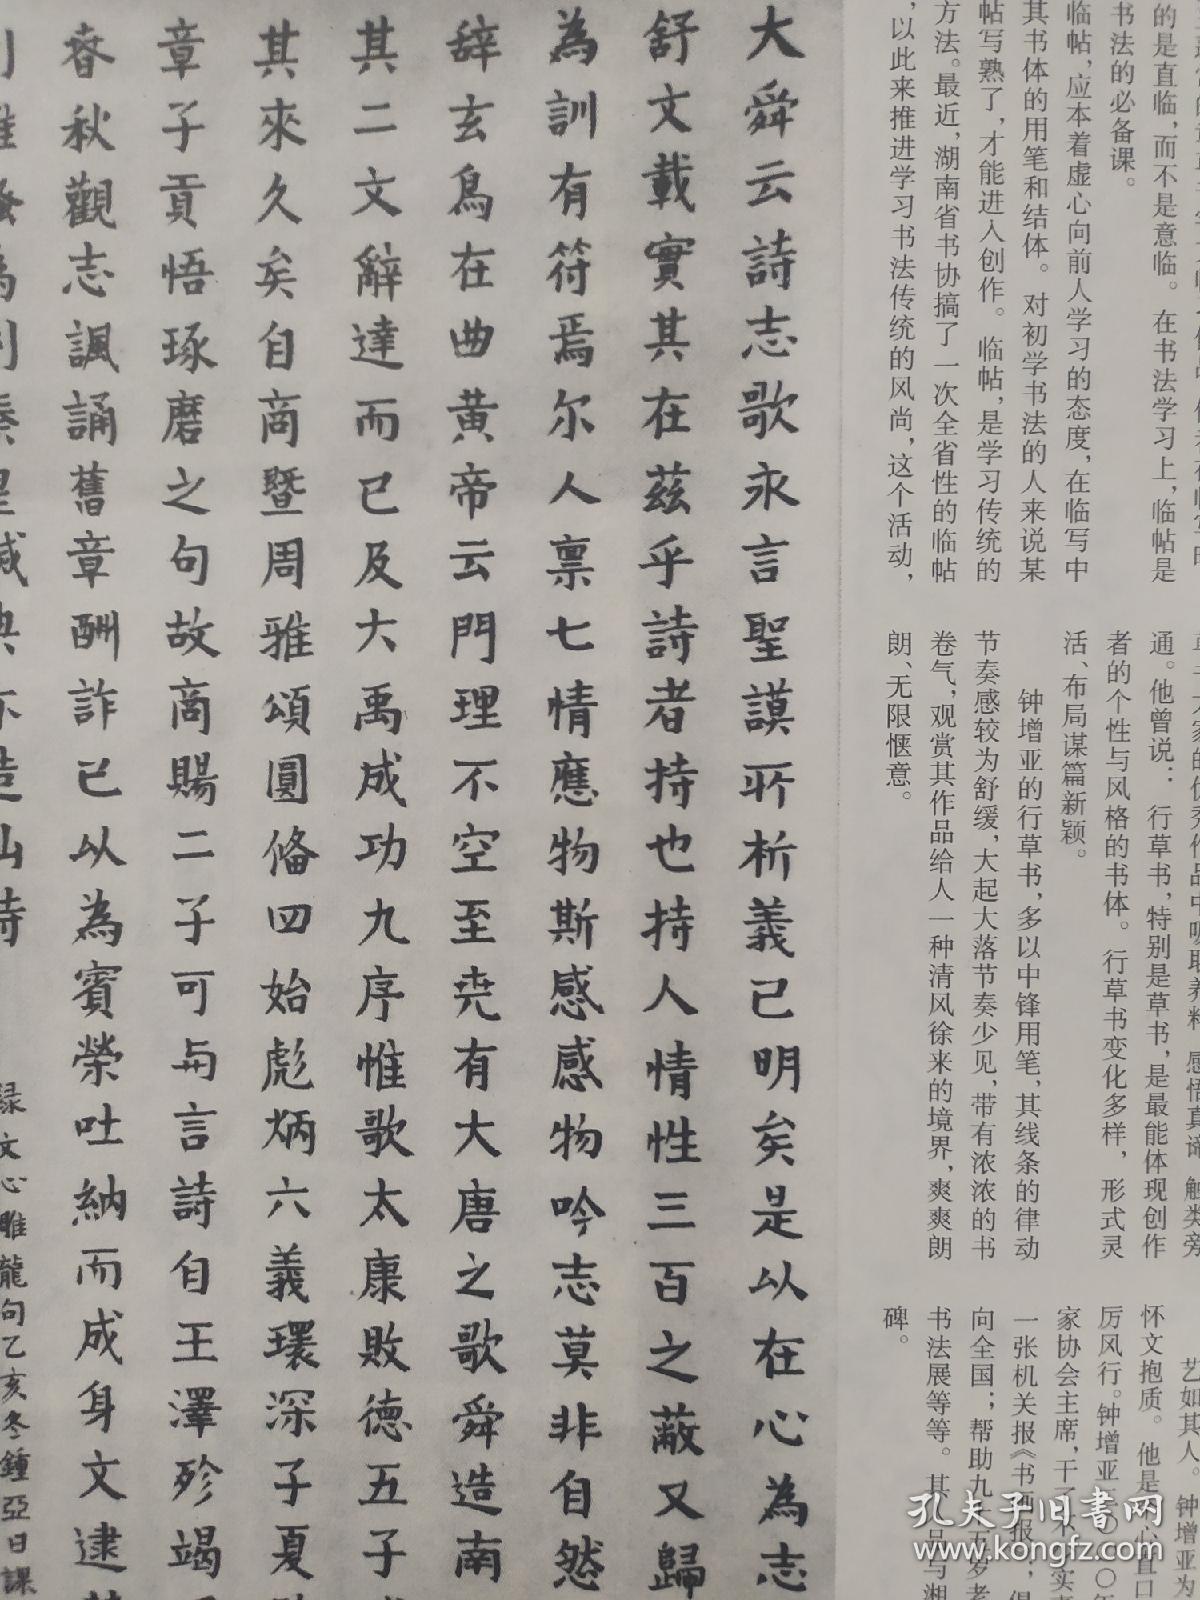 的是直临,而不是意临。在书法学习上,临帖是
书法的必备课。
临帖,应本着虚心向前人学习的态度,在临写中
其书体的用笔和结体。对初学书法的人来说某
帖写熟了,才能进入创作。临帖,是学习传统的
方法。最近,湖南省书协搞了一次全省性的临帖
,以此来推进学习书法传统的风尚,这个活动,
家的优秀作品中吸取养料,感悟真谛,触类旁
通。他曾说:行草书,特别是草书,是最能体现创作
者的个性与风格的书体。行草书变化多样,形式灵
活、布局谋篇新颖。
钟增亚的行草书,多以中锋用笔,其线条的律动
节奏感较为舒缓,大起大落节奏少见,带有浓浓的书
卷气,观赏其作品给人一种清风徐来的境界,爽爽朗
朗、无限惬意。
艺如其人。钟增亚为
怀文抱质。他是心直口
厉风行。钟增亚〇〇年
家协会主席,干了不实事
一张机关报《书画报》;
向全国;帮助九十五岁老
书法展等等。其品与湘
碑。
大舜云詩志歌永言聖謨所析義已明矣是以在心為志
舒文載實其在茲乎詩者持也持人情性三百之蔽又歸
為訓有符焉尔人禀七情應物斯感感物吟志莫非自然
辞玄鳥在曲黄帝云門理不空至尭有大唐之歌舜造南
其二文辭達而已及大禹成功九序惟歌太康敗德五子
其來久矣自商暨周雅頌圓俻四始彪炳六義環深子夏
章子貢悟琢磨之句故商賜二子可与言詩自王澤殄竭
春秋觀志諷誦舊章酬詐已以為賓榮吐納而成身文逮
録文心雕龍句乙亥冬鍾亞日課
孔夫子旧书网
www.kongfz.com